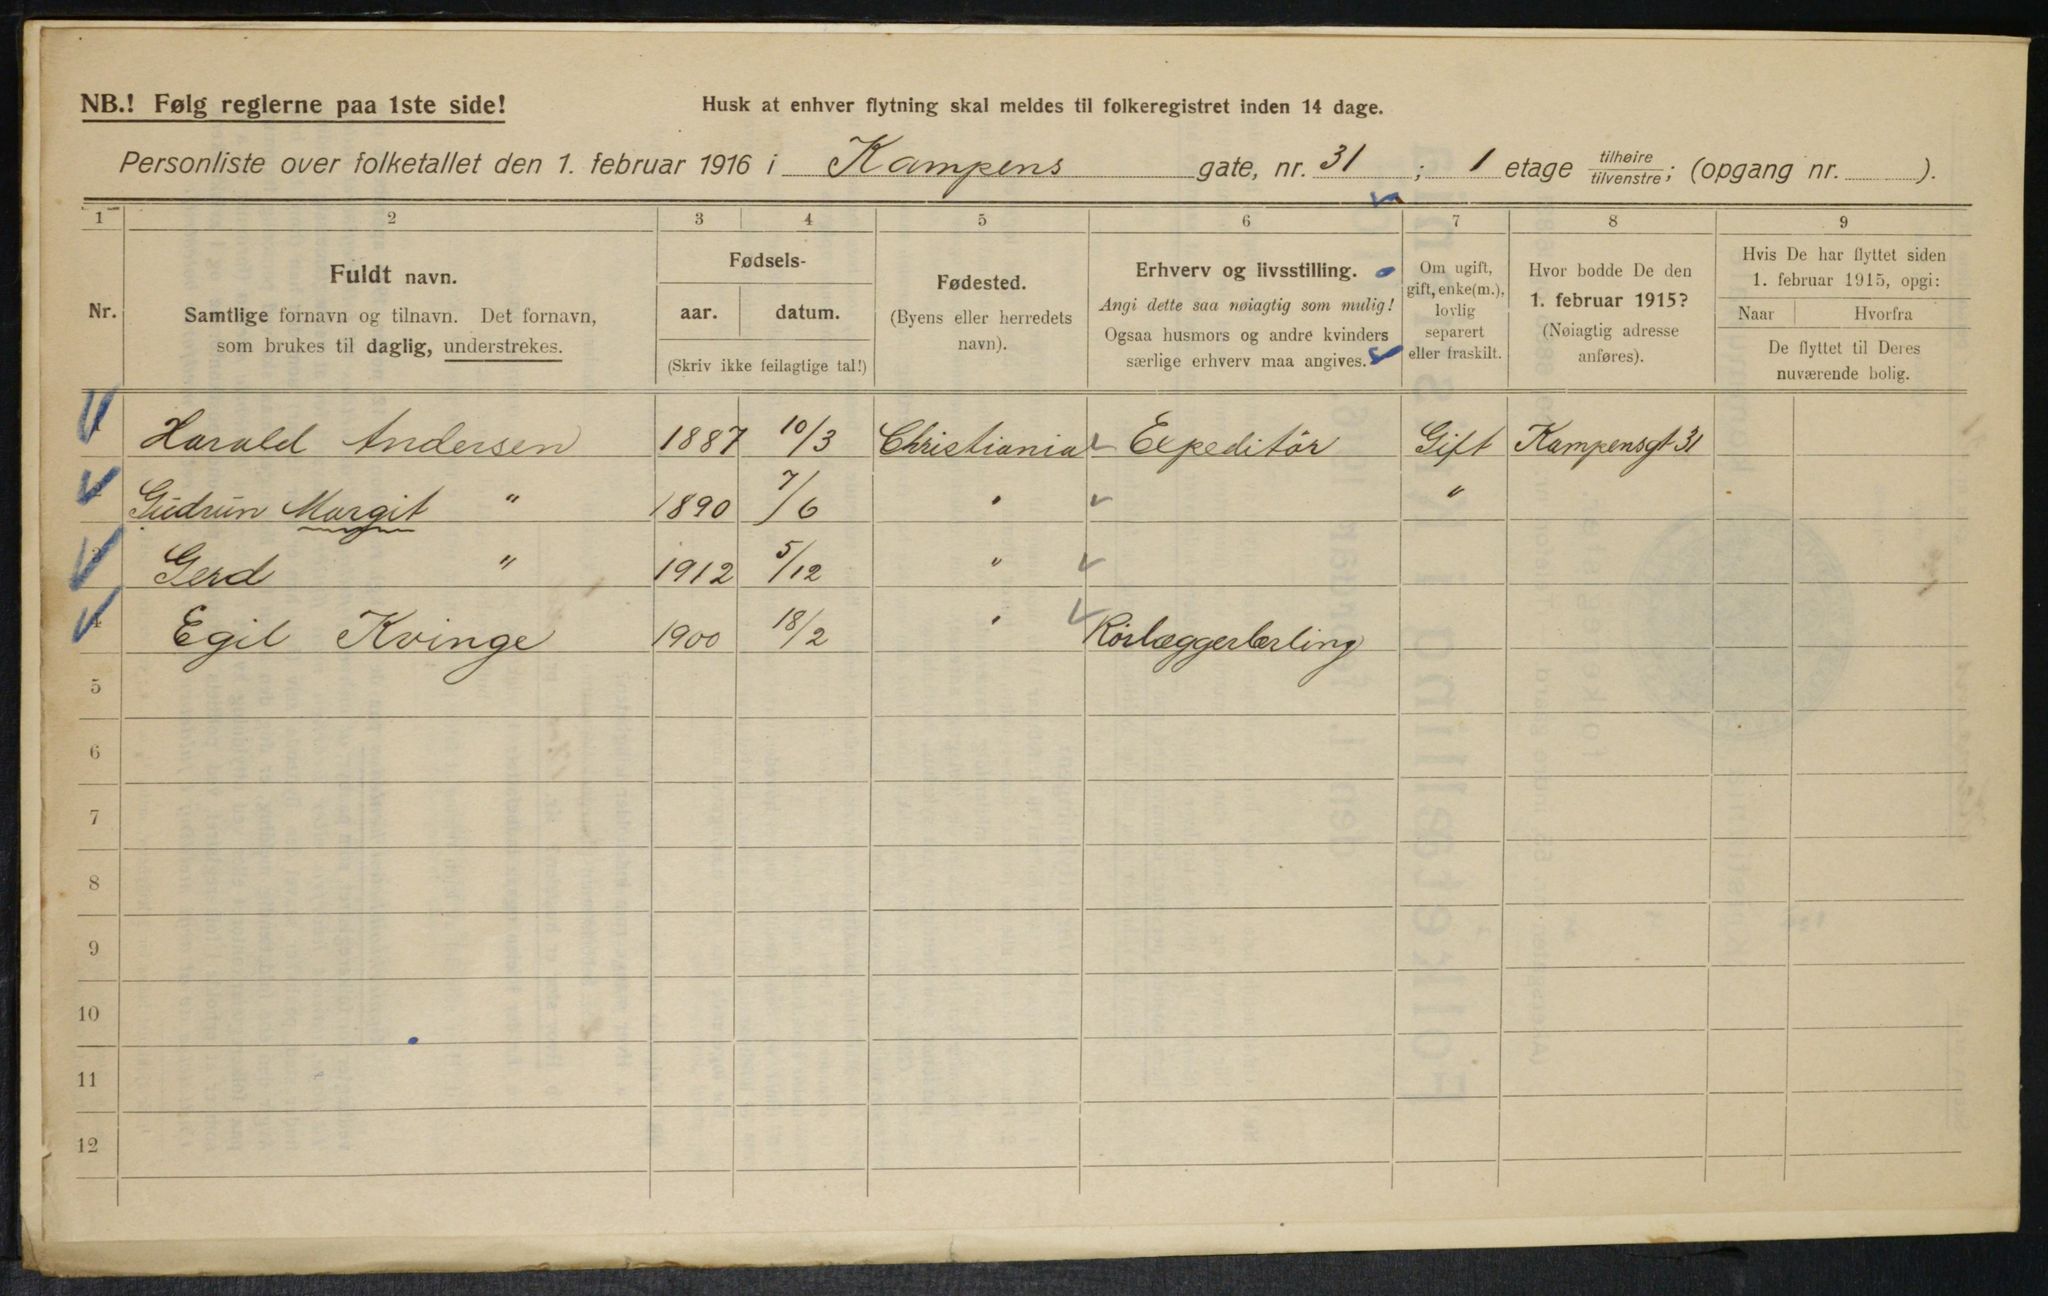 NB.! Følg reglerne paa 1ste side!
Husk at enhver flytning skal meldes til folkeregistret inden 14 dage.
Personliste over folketallet den 1. februar 1916 i Kampens gate, nr. 31 ; 1 etage tilhøire/tilvenstre; (opgang nr. ).
1 2 3 4 5 6 7 8 9
Nr.
Fuldt navn.
Samtlige fornavn og tilnavn. Det fornavn,
som brukes til daglig, understrekes.
Fødsels-
aar. datum.
(Skriv ikke feilagtige tal!)
Fødested.
(Byens eller herredets
navn).
Erhverv og livsstilling.
Angi dette saa nøiagtig som mulig!
Ogsaa husmors og andre kvinders
særlige erhverv maa angives.
Om ugift,
gift, enke(m.),
lovlig
separert
eller fraskilt.
Hvor bodde De den
1. februar 1915?
(Nøiagtig adresse
anføres).
Hvis De har flyttet siden
1. februar 1915, opgi:
Naar Hvorfra
De flyttet til Deres
nuværende bolig.
1 Harald Andersen 1887 10/3 Christiania Expeditör Gift Kampensgt 31
2 Gudrun Margit " 1890 7/6 " "
3 Gerd " 1912 5/12 "
4 Egil Kvinge 1900 18/2 " Rörlæggerlærling
5
6
7
8
9
10
11
12